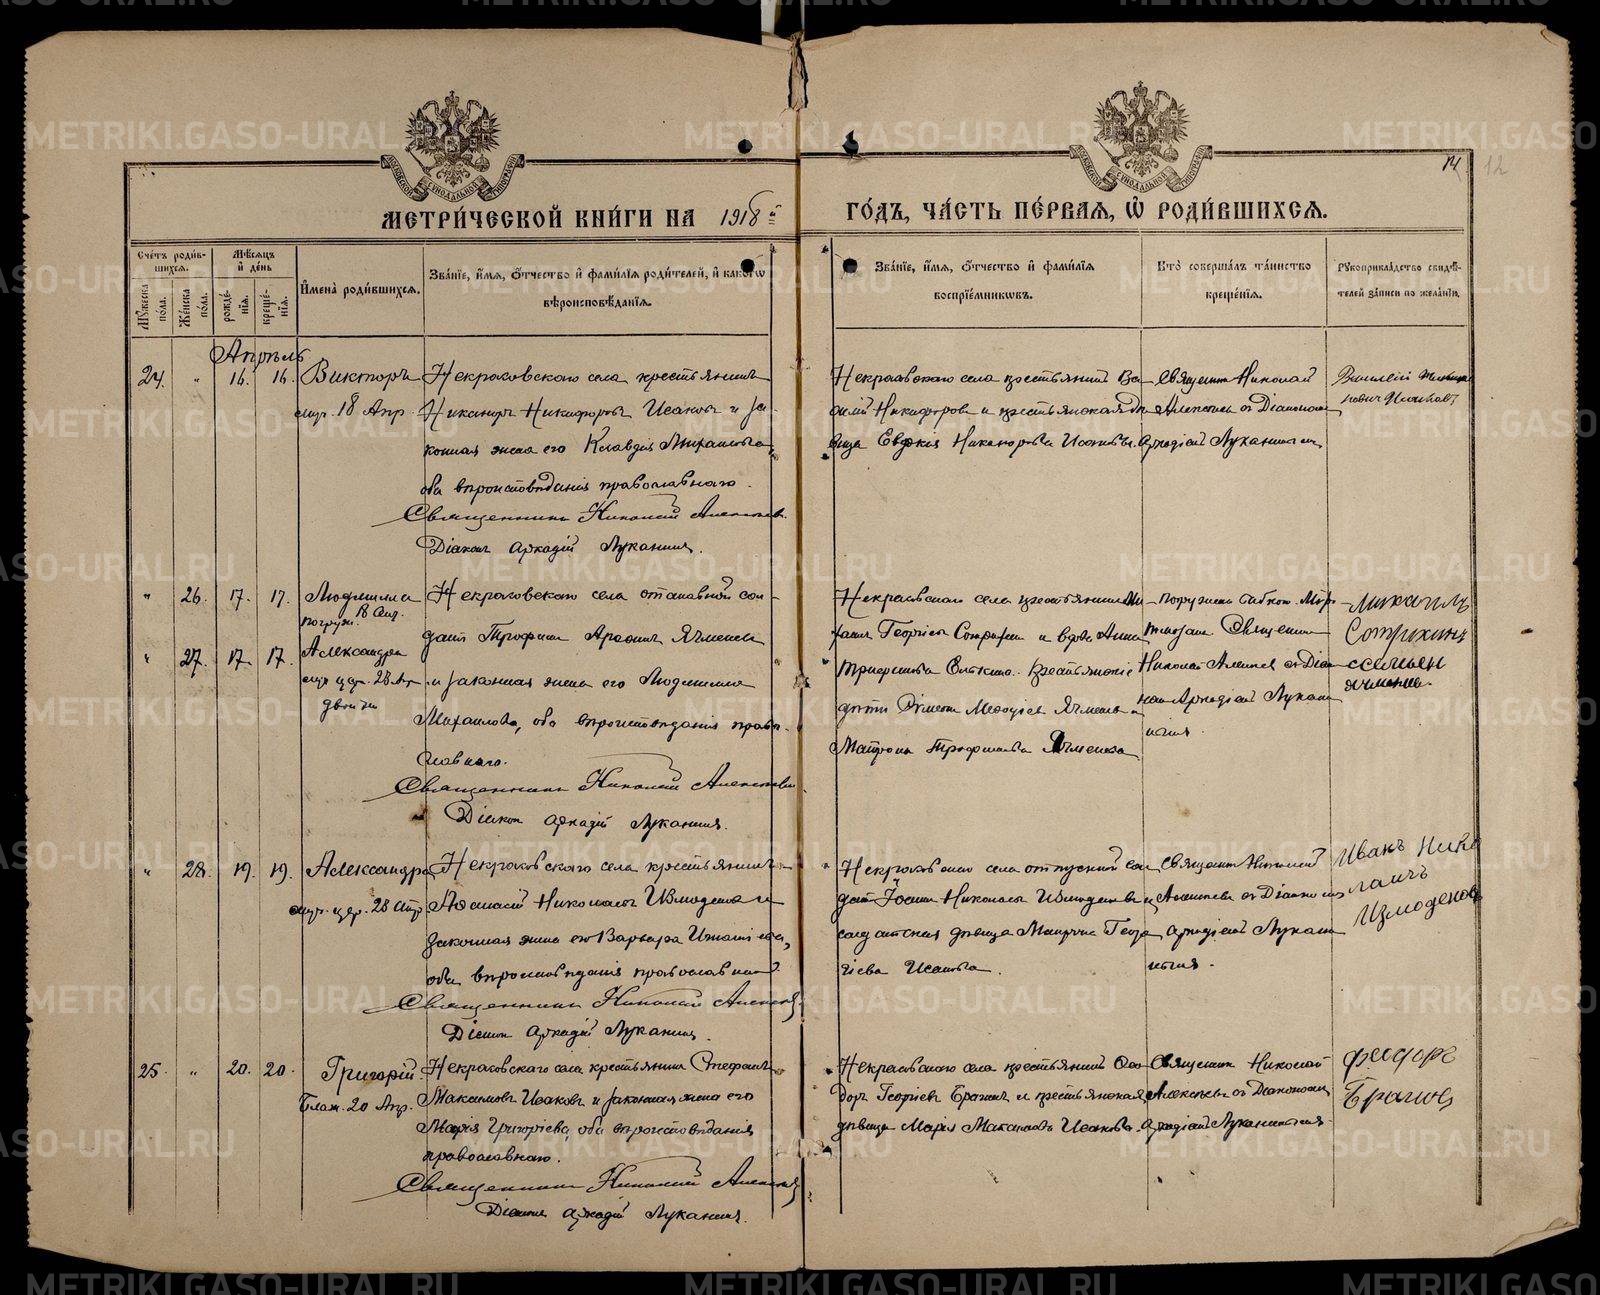 МЕТРИ́ЧЕСКОЙ КНИ́ГИ НА 1918й ГО́ДЪ, ЧА́СТЬ ПЕ́РВАѦ, Ѡ҆ РОДИ́ВШИХСѦ.
12
Сче́тъ роди́вшихсѧ.
Мꙋ́жеска по́ла.
Же́нска по́ла.
Мѣ́сѧцъ и҆ де́нь
рожде́нїѧ.
креще́нїѧ.
И҆мена̀ роди́вшихсѧ.
Зва́нїе, и҆́мѧ, ѻ҆́тчество и҆ фами́лїѧ роди́телей, и҆ како́гѡ вѣроисповѣ́данїѧ.
Зва́нїе, и҆́мѧ, ѻ҆́тчество и҆ фами́лїѧ воспрїе́мникѡвъ.
Кто̀ соверша́лъ та́инство креще́нїѧ.
Рꙋкоприкла́дство свидѣ́телей за́писи по жела́нїю.
Апрѣль
24. " 16. 16. Викторъ
18 Апр.
Некрасовскаго села крестьянинъ
Никаноръ Никифоровъ Исаковъ и за-
конная жена его Клавдія Михайлова,
оба вѣроисповѣданія православнаго.
Священникъ Николай Алексѣевъ
Діаконъ Аркадій Луканинъ.
Некрасовскаго села крестьянинъ Ва-
силій Никифоровъ и крестьянская дѣ-
вица Евдокія Никанорова Исакова.
Священникъ Николай
Алексѣевъ съ Діакономъ
Аркадіемъ Луканинымъ
Василий
" 26. 17. 17. Людмилла
погруж.
" 27. 17. 17. Александра
двойни
Некрасовскаго села отставной сол-
датъ Трофимъ Ячменевъ
и законная жена его Людмилла
Михаилова, оба вѣроисповѣданія право-
славнаго.
Священникъ Николай Алексѣевъ
Діаконъ Аркадій Луканинъ.
Некрасовскаго села крестьянинъ Ми-
хаилъ Георгіевъ Сотрихинъ и вдова Анна
дѣти Ячменевъ и
Матрона Трофимова Ячменева
Николай Алексѣевъ съ Діако-
номъ Аркадіемъ Лукани-
нымъ.
Михаилъ
Сотрихинъ
" 28. 19. 19. Александра
28 Апр.
Некрасовскаго села крестьянинъ
Николаевъ Измоденовъ и
законная жена его Варвара Игнатіева,
оба вѣроисповѣданія православнаго
Священникъ Николай Алексѣевъ
Діаконъ Аркадій Луканинъ.
Некрасовскаго села отпускной сол-
датъ Іоаннъ Николаевъ Измоденовъ и
солдатская дѣвица Георг-
іева Исакова.
Священникъ Николай
Алексѣевъ съ Діакономъ
Аркадіемъ Лукани-
нымъ.
Иванъ Нико
лаичъ
Измоденовъ
25. " 20. 20. Григорій
20 Апр.
Некрасовскаго села крестьянинъ Стефанъ
Максимовъ Исаковъ и законная жена его
Марія Григоріева, оба вѣроисповѣданія
православнаго.
Священникъ Николай Алексѣевъ
Діаконъ Аркадій Луканинъ.
Некрасовскаго села крестьянинъ Ѳео-
доръ Георгіевъ Брагинъ и крестьянская
дѣвица Марія Максимова Исакова.
Священникъ Николай
Алексѣевъ съ Діакономъ
Аркадіемъ Луканинымъ.
Федоръ
Брагинъ
METRIKI.GASO-URAL.RU